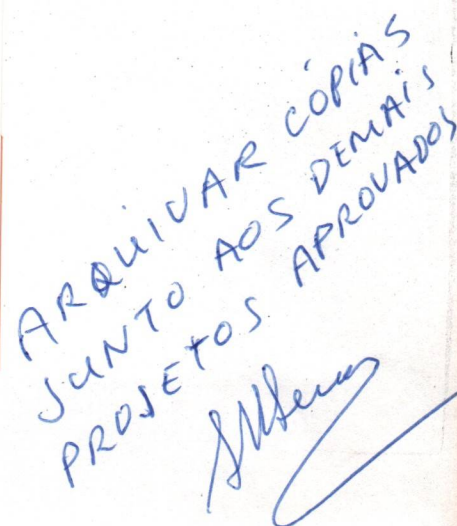 ARQUIVAR CÓPIAS
JUNTO AOS DEMAIS
PROJETOS APROVADOS